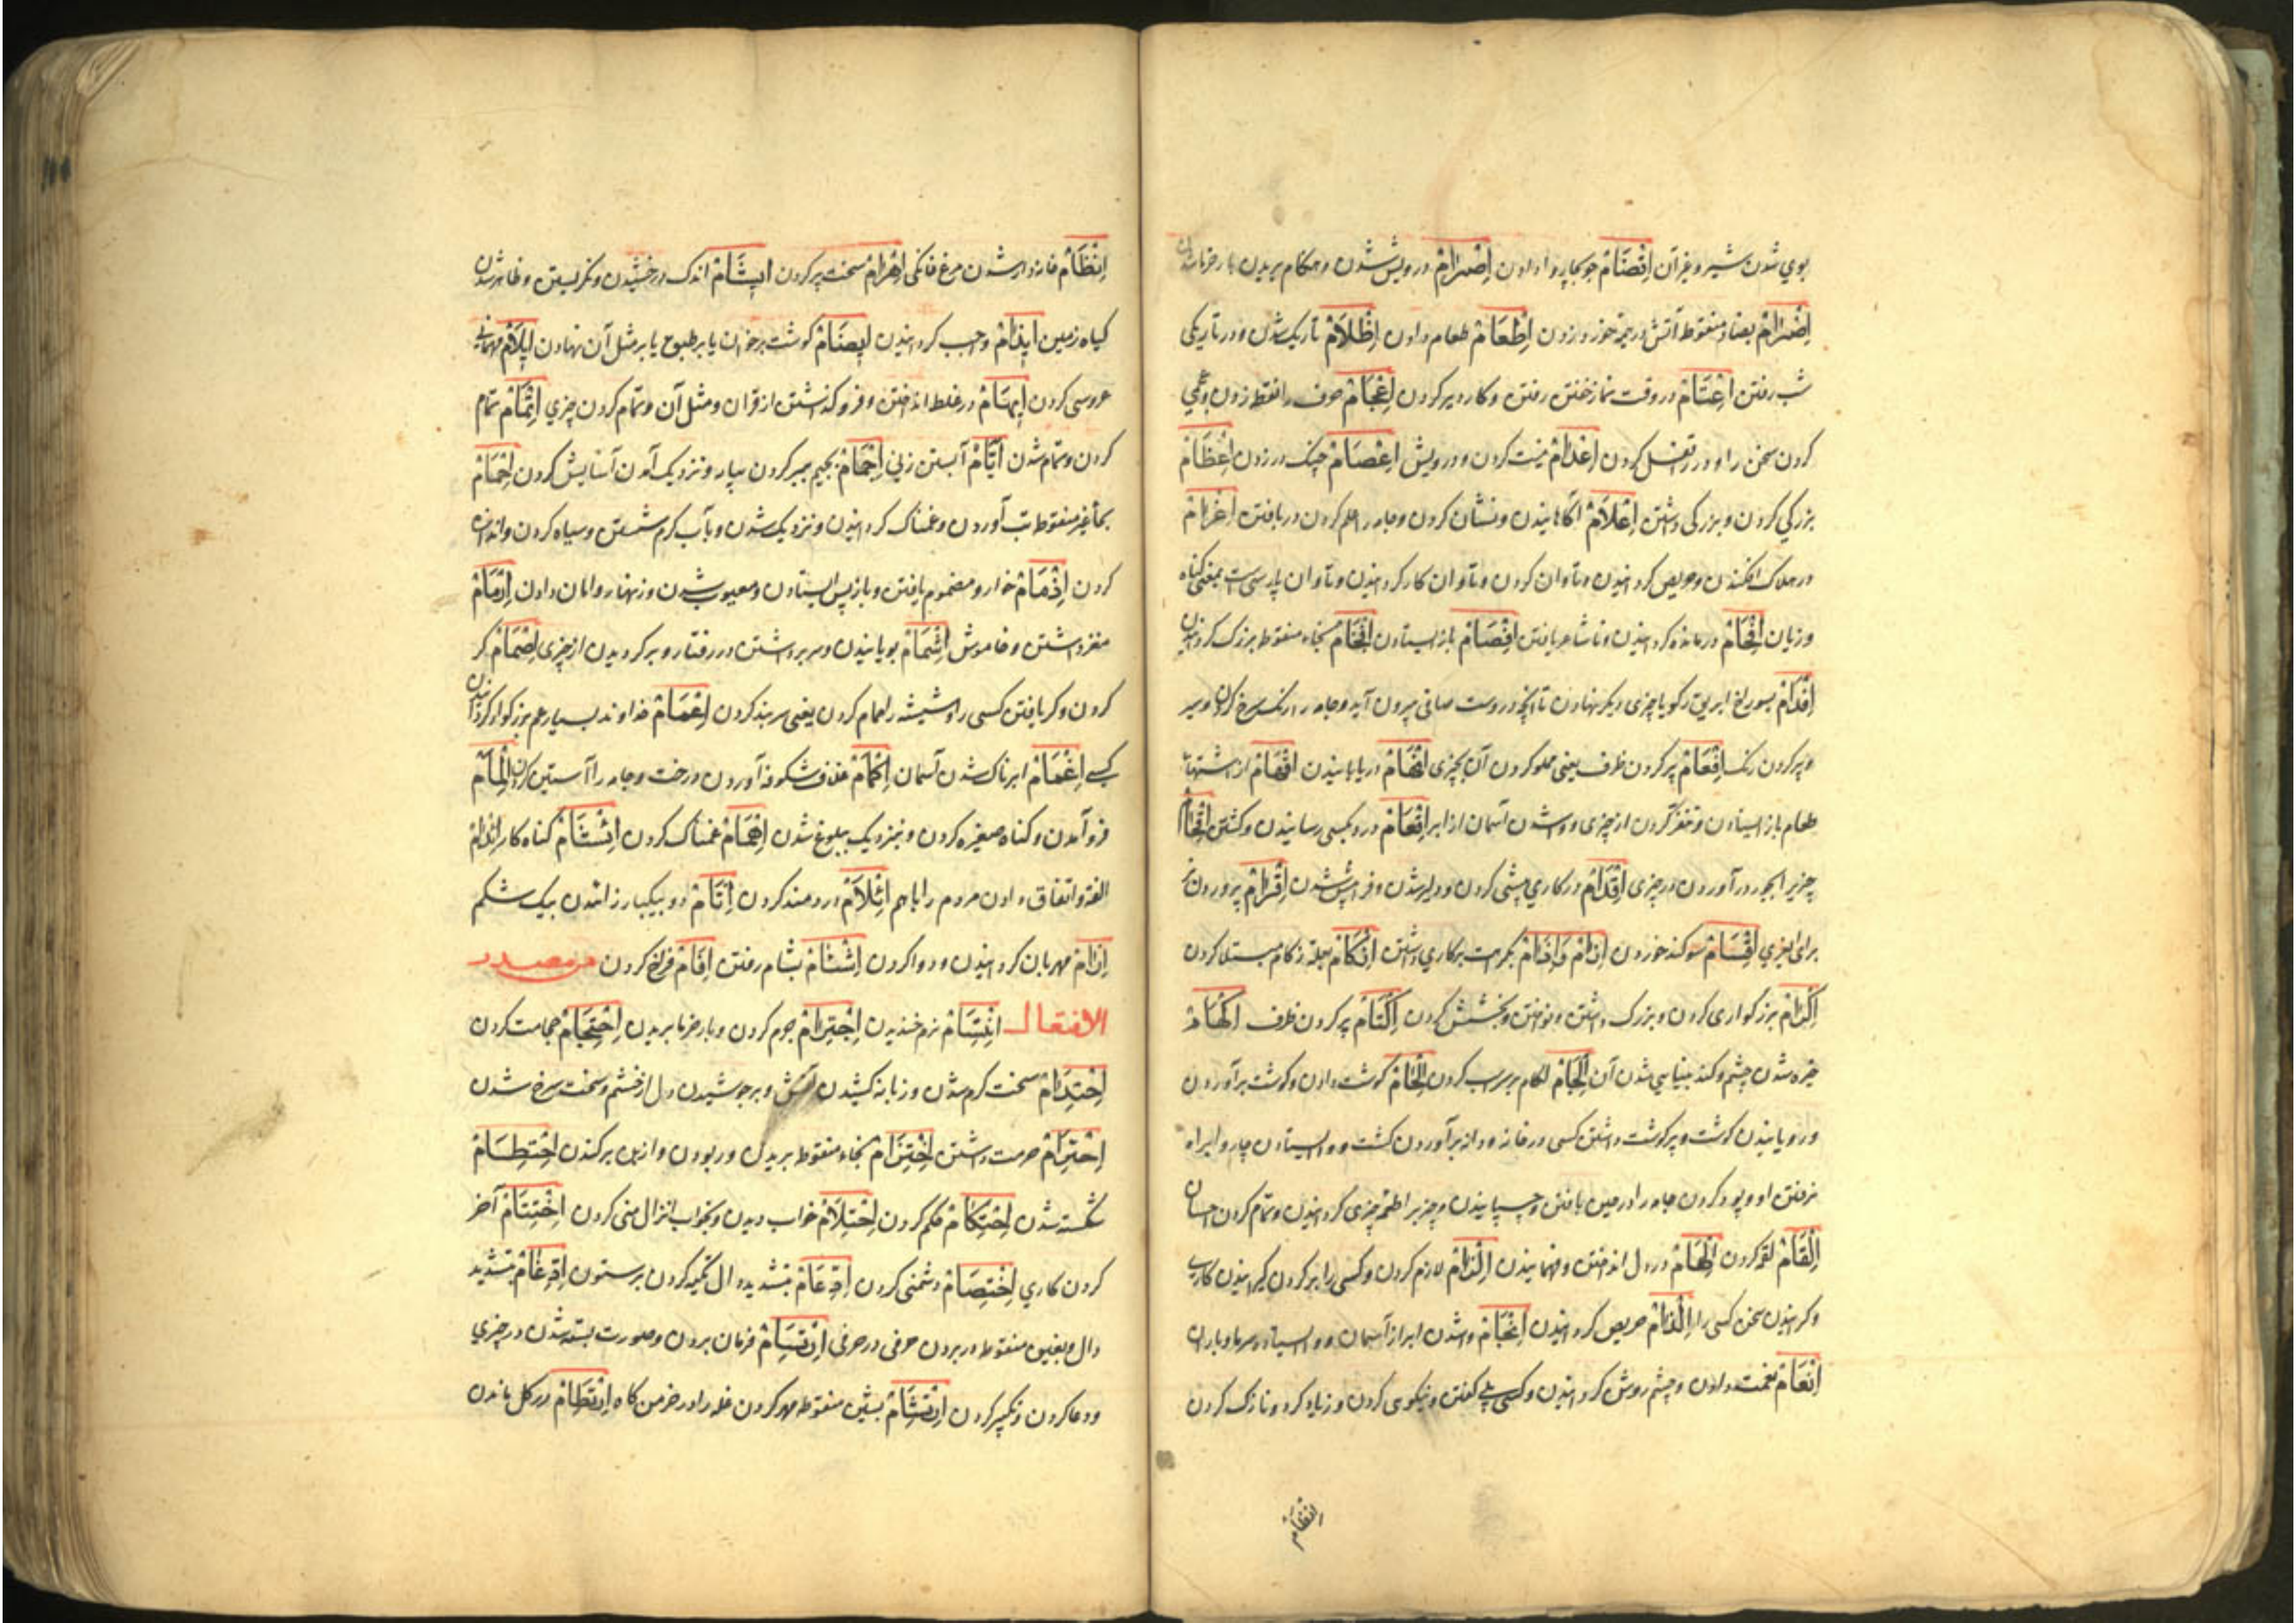 بوي شدن شیر و غیر آن اِقْضَامْ جو بچارپا دادن اِصْرَامْ درویش شدن و هنکام بریدن بار خرما شدن
اِضْرَامْ بضاد منقوطه آتش در هیزم زدن اِطْعَامْ طعام دادن اِظْلَامْ تاریک شدن و در تاریکی
شب رفتن اِعْتَامْ در وقت نماز خفتن رفتن و کار دیر کردن اِعْجَامْ حرف را نقطه زدن و عجمی
کردن سخن را و در را قفل کردن اِعْدَامْ نیست کردن و درویش اِعْصَامْ چنک در زدن اِعْظَامْ
بزرکي کردن و بزرکی داشتن اِعْلَامْ آکاهانیدن و نشان کردن و جامه را علم کردن و دریافتن اِغْرَامْ
در هلاک افکندن و حریص کردانیدن و تاوان کردن و تاوان کار کردانیدن و تاوان پارسی ست بمعنی کناه
و زیان اِفْحَامْ درمانده کردانیدن و ناشاعر یافتن اِفْصَامْ باز ایستادن اِفْخَامْ بخاء منقوطه بزرک کردانیدن
اِفْدَامْ بسوراخ ابریق رکو یا چیزی دیکر نهادن تا آنچه دروست صافی بیرون آید و جامه را رنک سرخ کردن و سیر
و پر کردن رنک اِفْعَامْ پر کردن ظرف یعنی مملو کردن آن بچیزی اِفْهَامْ دریابانیدن اِقْهَامْ از اشتهاء
طعام باز ایستادن و متنفر کردن از چیزی و وا شدن آسمان از ابر اِقْعَامْ درد بکسی رسانیدن و کشتن اِقْحَامْ
چیزیرا بجبر در آوردن در چیزی اِقْدَامْ در کاری پیشی کردن و دلیر شدن و فرا پیش شدن اِقْرَامْ پروردن نر
برای بغیری اِقْسَامْ سوکند خوردن اِکْتَامْ اِزْکَامْ بعلة زکام مبتلا کردن
اِکْرَامْ بزرکواری کردن و بزرک داشتن و نواختن و بخشش کردن اِکْتَامْ پر کردن ظرف اِکْهَامْ
خیره شدن چشم و کند بینایی شدن آن اِلْجَامْ لکام بر سر اسب کردن اِلْحَامْ کوشت دادن و کوشت برآوردن
و رویانیدن کوشت و پر کوشت داشتن کسی در خانه و دانه برآوردن کشت و وا ایستادن چاروا براه
نرفتن او و پود کردن جامه را در حین بافتن و چسپانیدن و چیزیرا طعم چیزی کردانیدن و تمام کردن احسان
اِلْقَامْ لقمه کردن اِلْهَامْ در دل انداختن و فهمانیدن اِلْزَامْ لازم کردن و کسی را بر کردن کیرانیدن کاری
و کردانیدن سخن کسی را اِلْذَامْ حریص کردانیدن اِنْجَامْ وا شدن ابر از آسمان و وا ایستادن سرما و باران
اِنْعَامْ نعمت دادن و چشم روشن کردانیدن و کسی را بلی کفتن و نیکویی کردن و زیاده کردن و نازک کردن
انظام
اِنْظَامْ خانه دار شدن مرغ خانکی اِهْرَامْ سخت پیر کردن اِیشَامْ اندک درخشیدن و نکریستن و ظاهر شدن
کیاه زمین اِیذَامْ واجب کردانیدن اِیضَامْ کوشت بر خوان یا بر طبق یا بر مثل آن نهادن اِیلَامْ مهمانی
عروسی کردن اِیهَامْ در غلط انداختن و فرو کذاشتن از قرآن و مثل آن و تمام کردن چیزي اِتْمَامْ تمام
کردن و تمام شدن اِتْآمْ آبستن زنی اِجْمَامْ بجیم سیر کردن و نزدیک آمدن آسایش کردن اِحْمَامْ
بحاء غیر منقوطه تب آوردن و غمناک کردانیدن و نزدیک شدن و بآب کرم شستن و سیاه کردن و اندازه
کردن اِذْمَامْ خوار و مذموم یافتن و باز پس ایستادن و معیوب شدن و زنهار و امان دادن اِرْمَامْ
مغز داشتن و خاموش اِشْمَامْ بویانیدن و سر برداشتن در رفتار و بر کردیدن از چیزی اِصْمَامْ کر
کردن و کر یافتن کسی را و شیشه را صمام کردن یعنی سر بند کردن اِعْمَامْ خداوند بسیار عم بزرکوار کردانیدن
کسی اِغْمَامْ ابرناک شدن آسمان اِکْمَامْ غلاف شکوفه آوردن درخت و جامه را آستین کردن اِلْمَامْ
فرو آمدن و کناه صغیره کردن و نزدیک ببلوغ شدن اِهْمَامْ غمناک کردن
الفة و اتفاق دادن مردم را با هم اِئْلَامْ دردمند کردن اِتْآمْ دو بیکبار زائیدن بیک شکم
اِرْآمْ مهربان کردانیدن و دوا کردن اِشْئَامْ بشام رفتن اِفْآمْ فراخ کردن من مصدر
الافتعال اِبْتِسَامْ نرم خندیدن اِجْتِرَامْ جرم کردن و بار خرما بریدن اِحْتِجَامْ حجامت کردن
اِحْتِدَامْ سخت کرم شدن و زبانه کشیدن آتش و بر جوشیدن دل از خشم و سخت سرخ شدن
اِحْتِرَامْ حرمت داشتن اِخْتِرَامْ بخاء منقوطه بریدن و ربودن و از بن برکندن اِحْتِطَامْ
شکسته شدن اِحْتِکَامْ حکم کردن اِحْتِلَامْ خواب دیدن و بخواب انزال منی کردن اِخْتِتَامْ آخر
کردن کاري اِخْتِصَامْ دشمنی کردن اِدِّعَامْ بتشدید دال تکیه کردن بر ستون اِدِّغَامْ بتشدید
دال و بغین منقوطه در بردن حرفی در حرفی اِرْتِسَامْ فرمان بردن و صورت بسته شدن در چیزي
و دعا کردن و تکبیر کردن اِرْتِشَامْ بشین منقوطه مهر کردن غله را در خرمن کاه اِرْتِطَامْ در کل ماندن